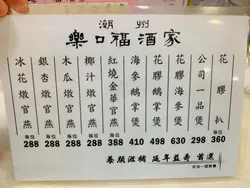 潮州
樂口福酒家
花膠扒 每位 360
公司一品煲 298
花膠海參煲 630
花膠鵝掌煲 498
海參鵝掌煲 410
紅燒金華官燕 每位 388
椰汁燉官燕 每位 288
木瓜燉官燕 每位 288
銀杏燉官燕 每位 288
冰花燉官燕 每位 288
養顏滋補 延年益壽 首選